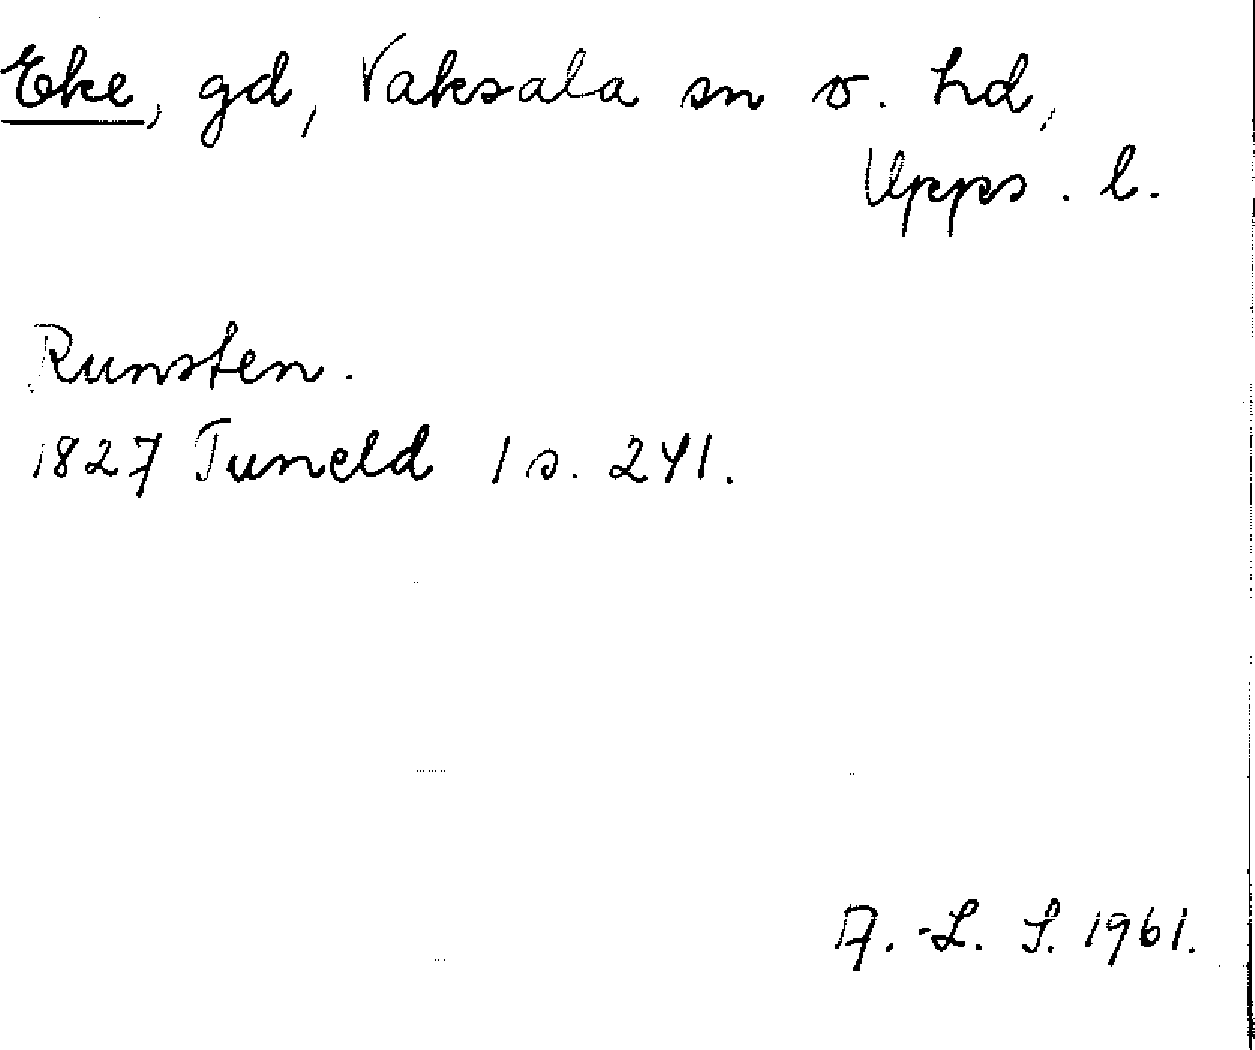 Eke, gd, Vaksala sn o. hd,
Upps. l.
Runsten.
1827 Tuneld 1 s. 241.
A.-L. S. 1961.